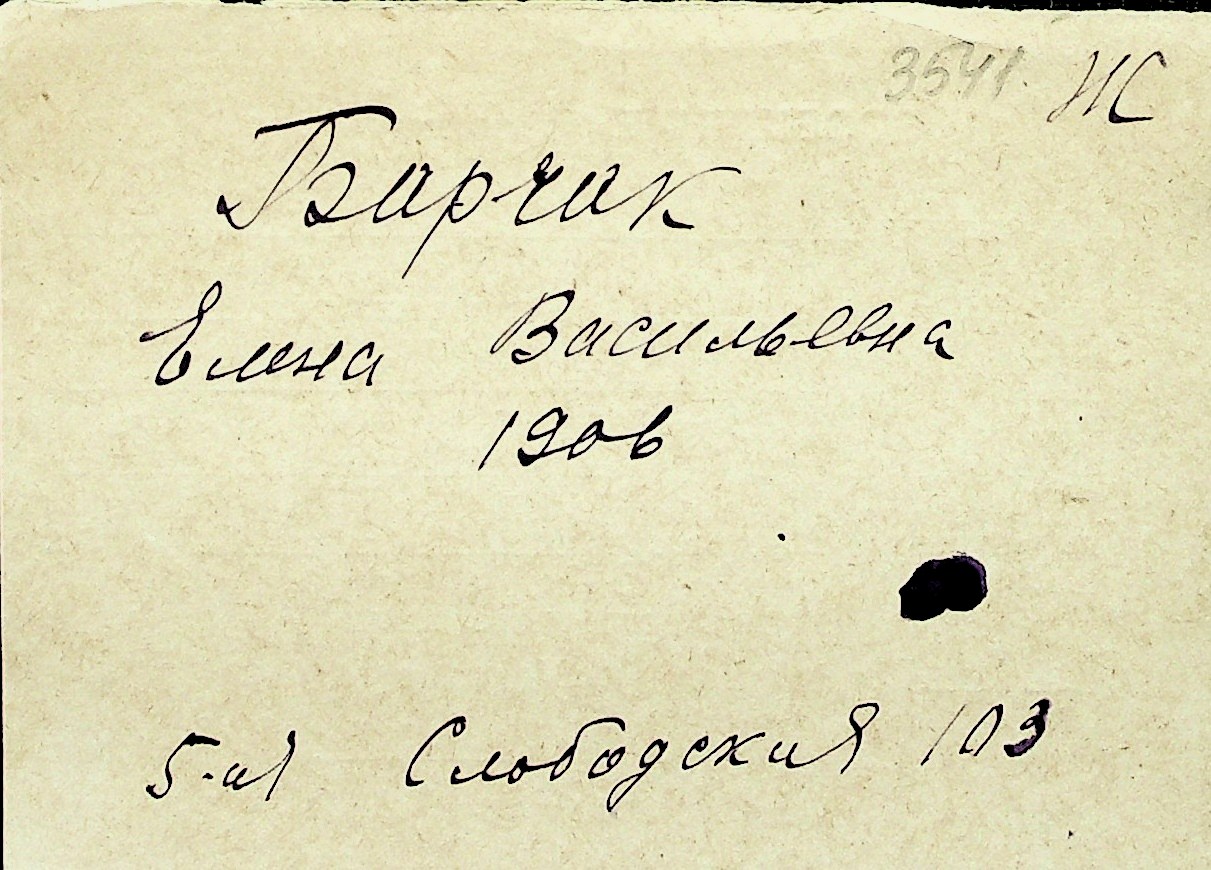 3541. Ж
Барчак
Елена Васильевна
1906
5-ая Слободская 103